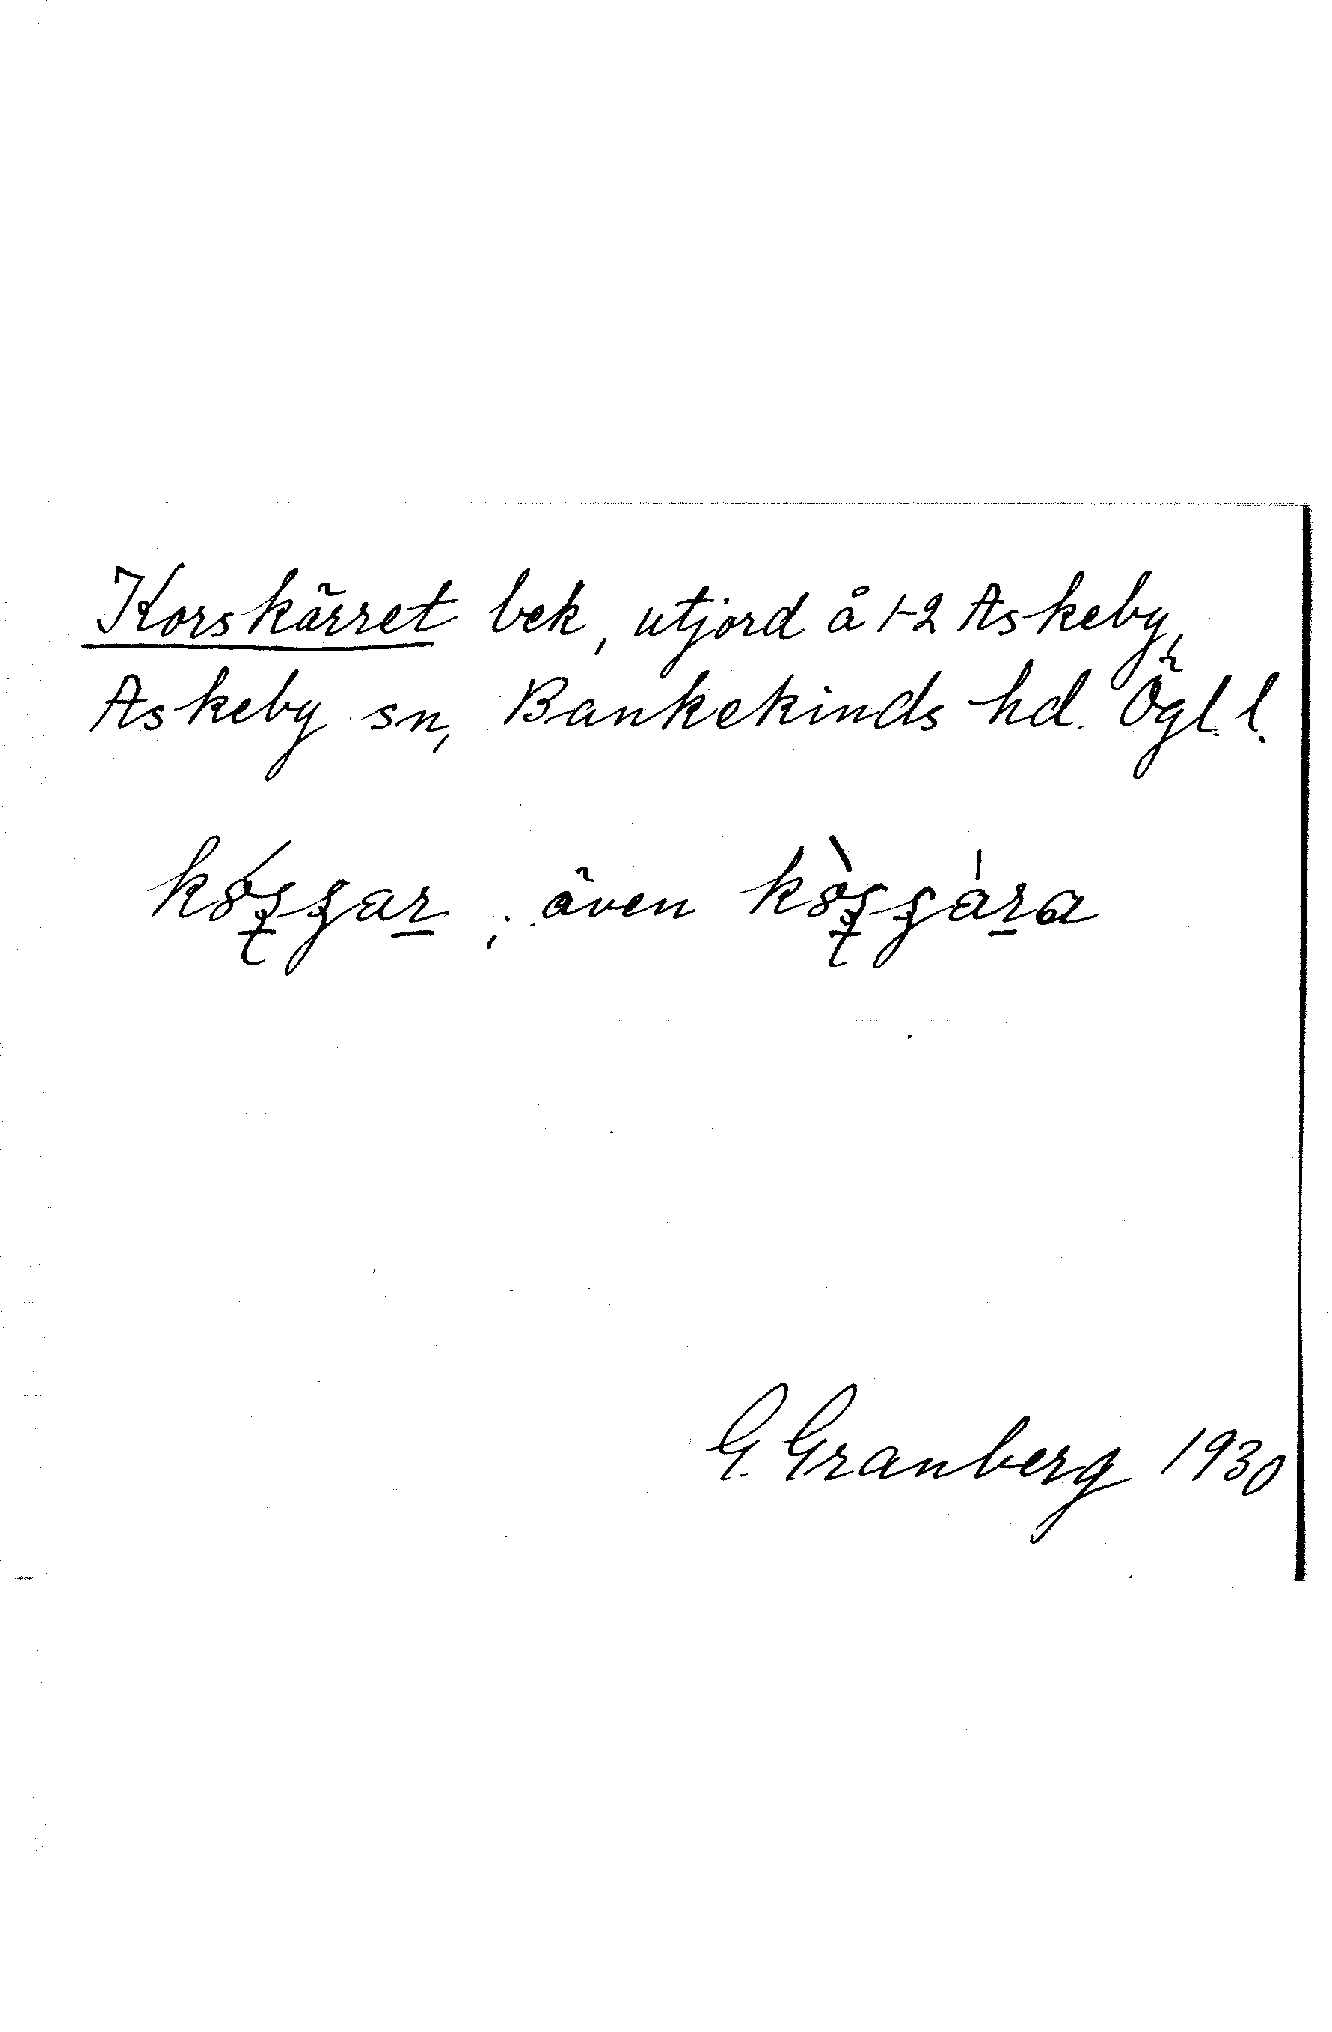 Korskärret bek, utjord å 1-2 Askeby,
Askeby sn, Bankekinds hd. Ögl. l.
, även
G. Granberg 1930